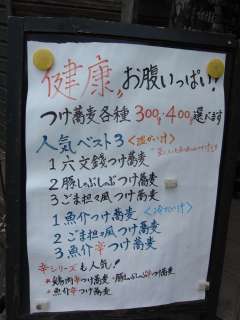 健康、お腹いっぱい!
つけ蕎麦各種 300g・400g選べます
人気ベスト3 <温かい汁>
1 六文銭つけ蕎麦
2 豚しゃぶしゃぶつけ蕎麦
3 ごま担々風つけ蕎麦
<冷たい汁>
1 魚介つけ蕎麦
2 ごま担々風つけ蕎麦
3 魚介辛つけ蕎麦
辛シリーズも人気!
鶏肉辛つけ蕎麦・豚しゃぶ辛つけ蕎麦
魚介辛つけ蕎麦